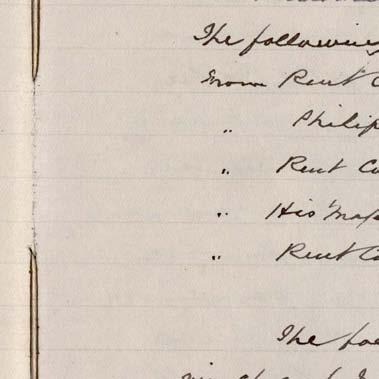 The following
From Rent C
" Philip
" Rent Co
" His Maj
" Rent Co
The fo